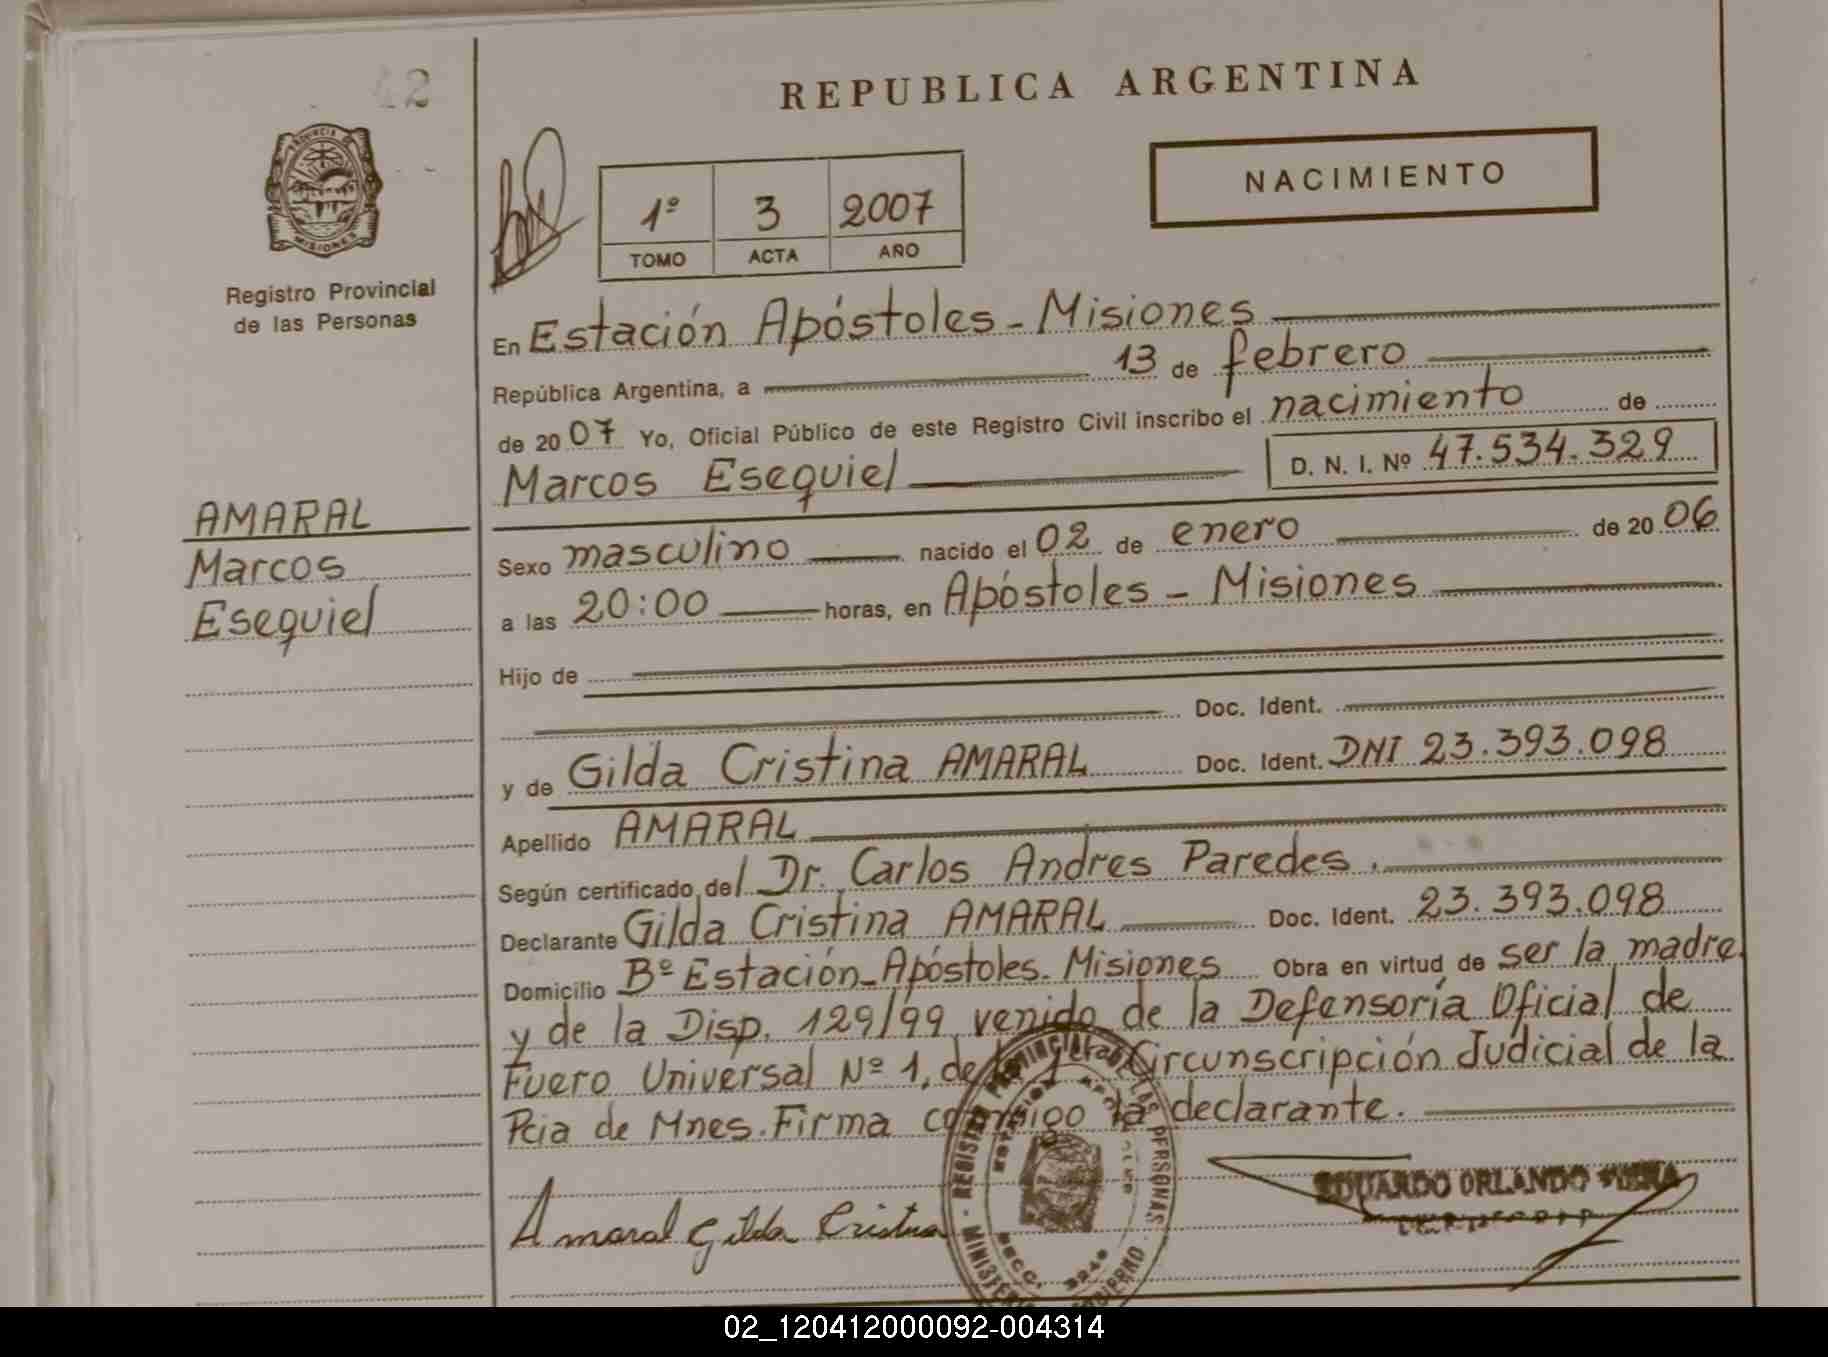 42
REPUBLICA ARGENTINA
NACIMIENTO
PROVINCIA DE
MISIONES
1º 3 2007
TOMO ACTA AÑO
Registro Provincial
de las Personas
En Estación Apóstoles - Misiones
República Argentina, a 13 de febrero
de 2007 Yo, Oficial Público de este Registro Civil inscribo el nacimiento de
Marcos Esequiel D. N. I. Nº 47.534.329
AMARAL
Marcos
Esequiel
Sexo masculino nacido el 02 de enero de 2006
a las 20:00 horas, en Apóstoles - Misiones
Hijo de
Doc. Ident.
y de Gilda Cristina AMARAL Doc. Ident. DNI 23.393.098
Apellido AMARAL
Según certificado del Dr. Carlos Andres Paredes.
Declarante Gilda Cristina AMARAL Doc. Ident. 23.393.098
Domicilio Bº Estación - Apóstoles - Misiones Obra en virtud de ser la madre
y de la Disp. 129/99 venido de la Defensoría Oficial de
Fuero Universal Nº 1, de la Circunscripción Judicial de la
Pcia de Mnes. Firma conmigo la declarante.
Amaral Gilda Cristina
EDUARDO ORLANDO
02_120412000092-004314